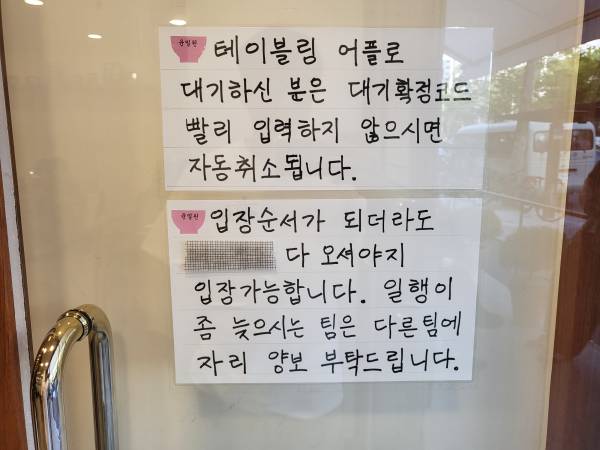 테이블링 어플로
대기하신 분은 대기확정코드
빨리 입력하지 않으시면
자동취소됩니다.
입장순서가 되더라도
다 오셔야지
입장가능합니다. 일행이
좀 늦으시는 팀은 다른팀에
자리 양보 부탁드립니다.